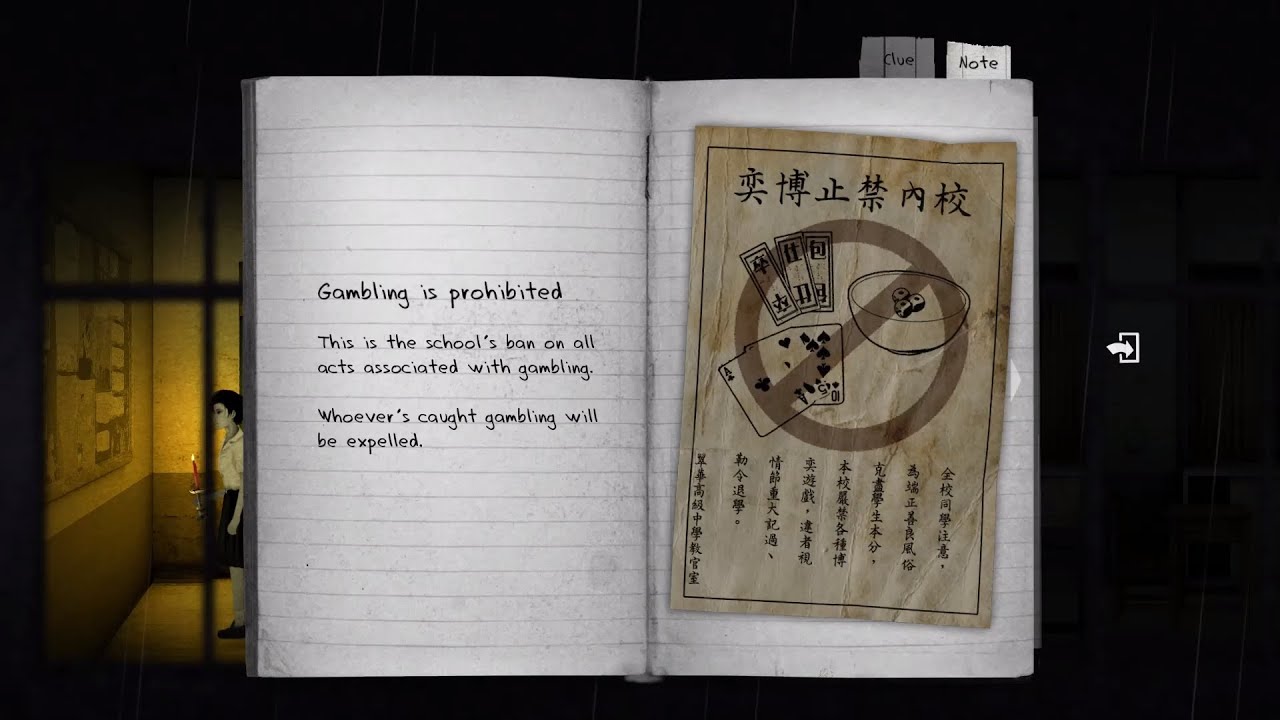 Clue
Note
Gambling is prohibited
This is the school's ban on all
acts associated with gambling.
Whoever's caught gambling will
be expelled.
校內禁止博奕
卒
仕
包
A
10
全校同學注意，
為端正善良風俗
克盡學生本分，
本校嚴禁各種博
奕遊戲，違者視
情節重大記過、
勒令退學。
翠華高級中學教官室